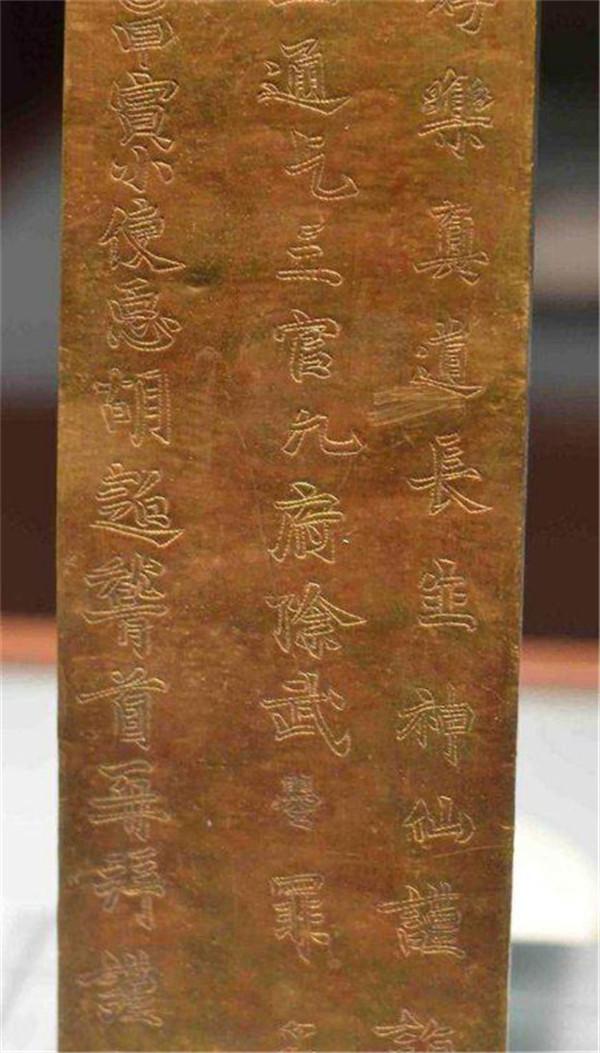 好樂真道長生神仙謹詣
通乞三官九府除武曌罪
甲寅小使𢘑胡超稽首再拜謹